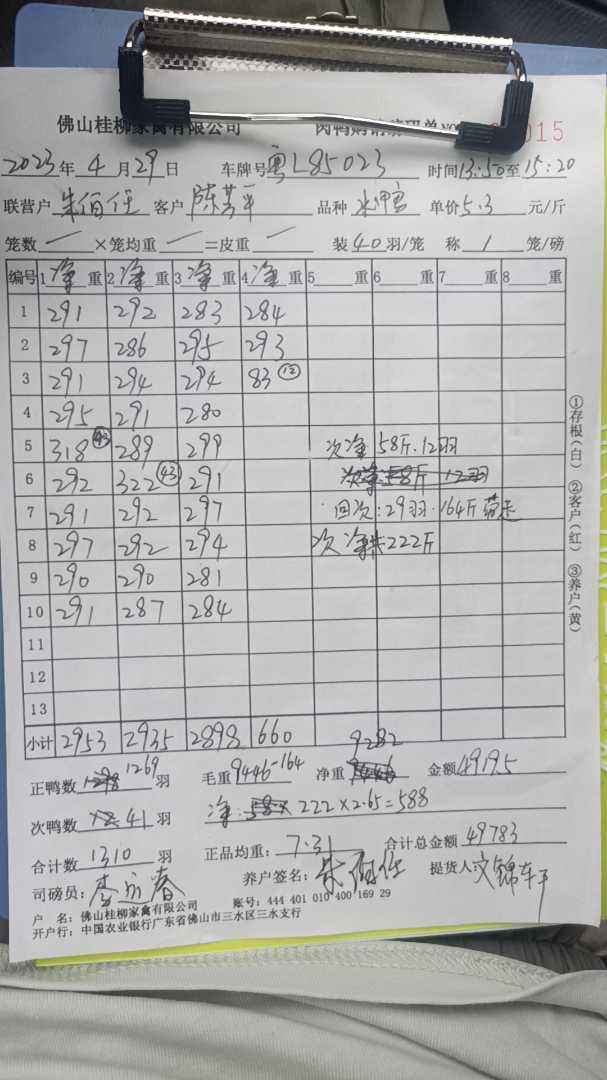 佛山桂柳家禽有限公司 015
2023年4月29日 车牌号粤L85023 时间13:50至15:20
联营户朱佰任 客户陈芳平 品种 单价5.3元/斤
笼数一×笼均重一=皮重一 装40羽/笼 称1笼/磅
编号 1净重 2净重 3净重 4净重 5重 6重 7重 8重
1 291 292 283 284
2 297 286 295 293
3 291 294 294 83⑫
4 295 291 280
5 318㊸ 289 299 次净58斤.12羽
6 292 322㊸ 291 次净:58斤 12羽
7 291 292 297 回次:29羽.164斤带走
8 297 292 294 次净共222斤
9 290 290 281
10 291 287 284
11
12
13
小计 2953 2935 2898 660
正鸭数1269羽 毛重9446-164 净重9282 金额49195
次鸭数41羽 净 222×2.65=588
合计数1310羽 正品均重:7.31 合计总金额49783
司磅员: 养户签名:朱佰任 提货人
户 名:佛山桂柳家禽有限公司 账号:444 401 010 400 169 29
开户行:中国农业银行广东省佛山市三水区三水支行
①存根(白) ②客户(红) ③养户(黄)